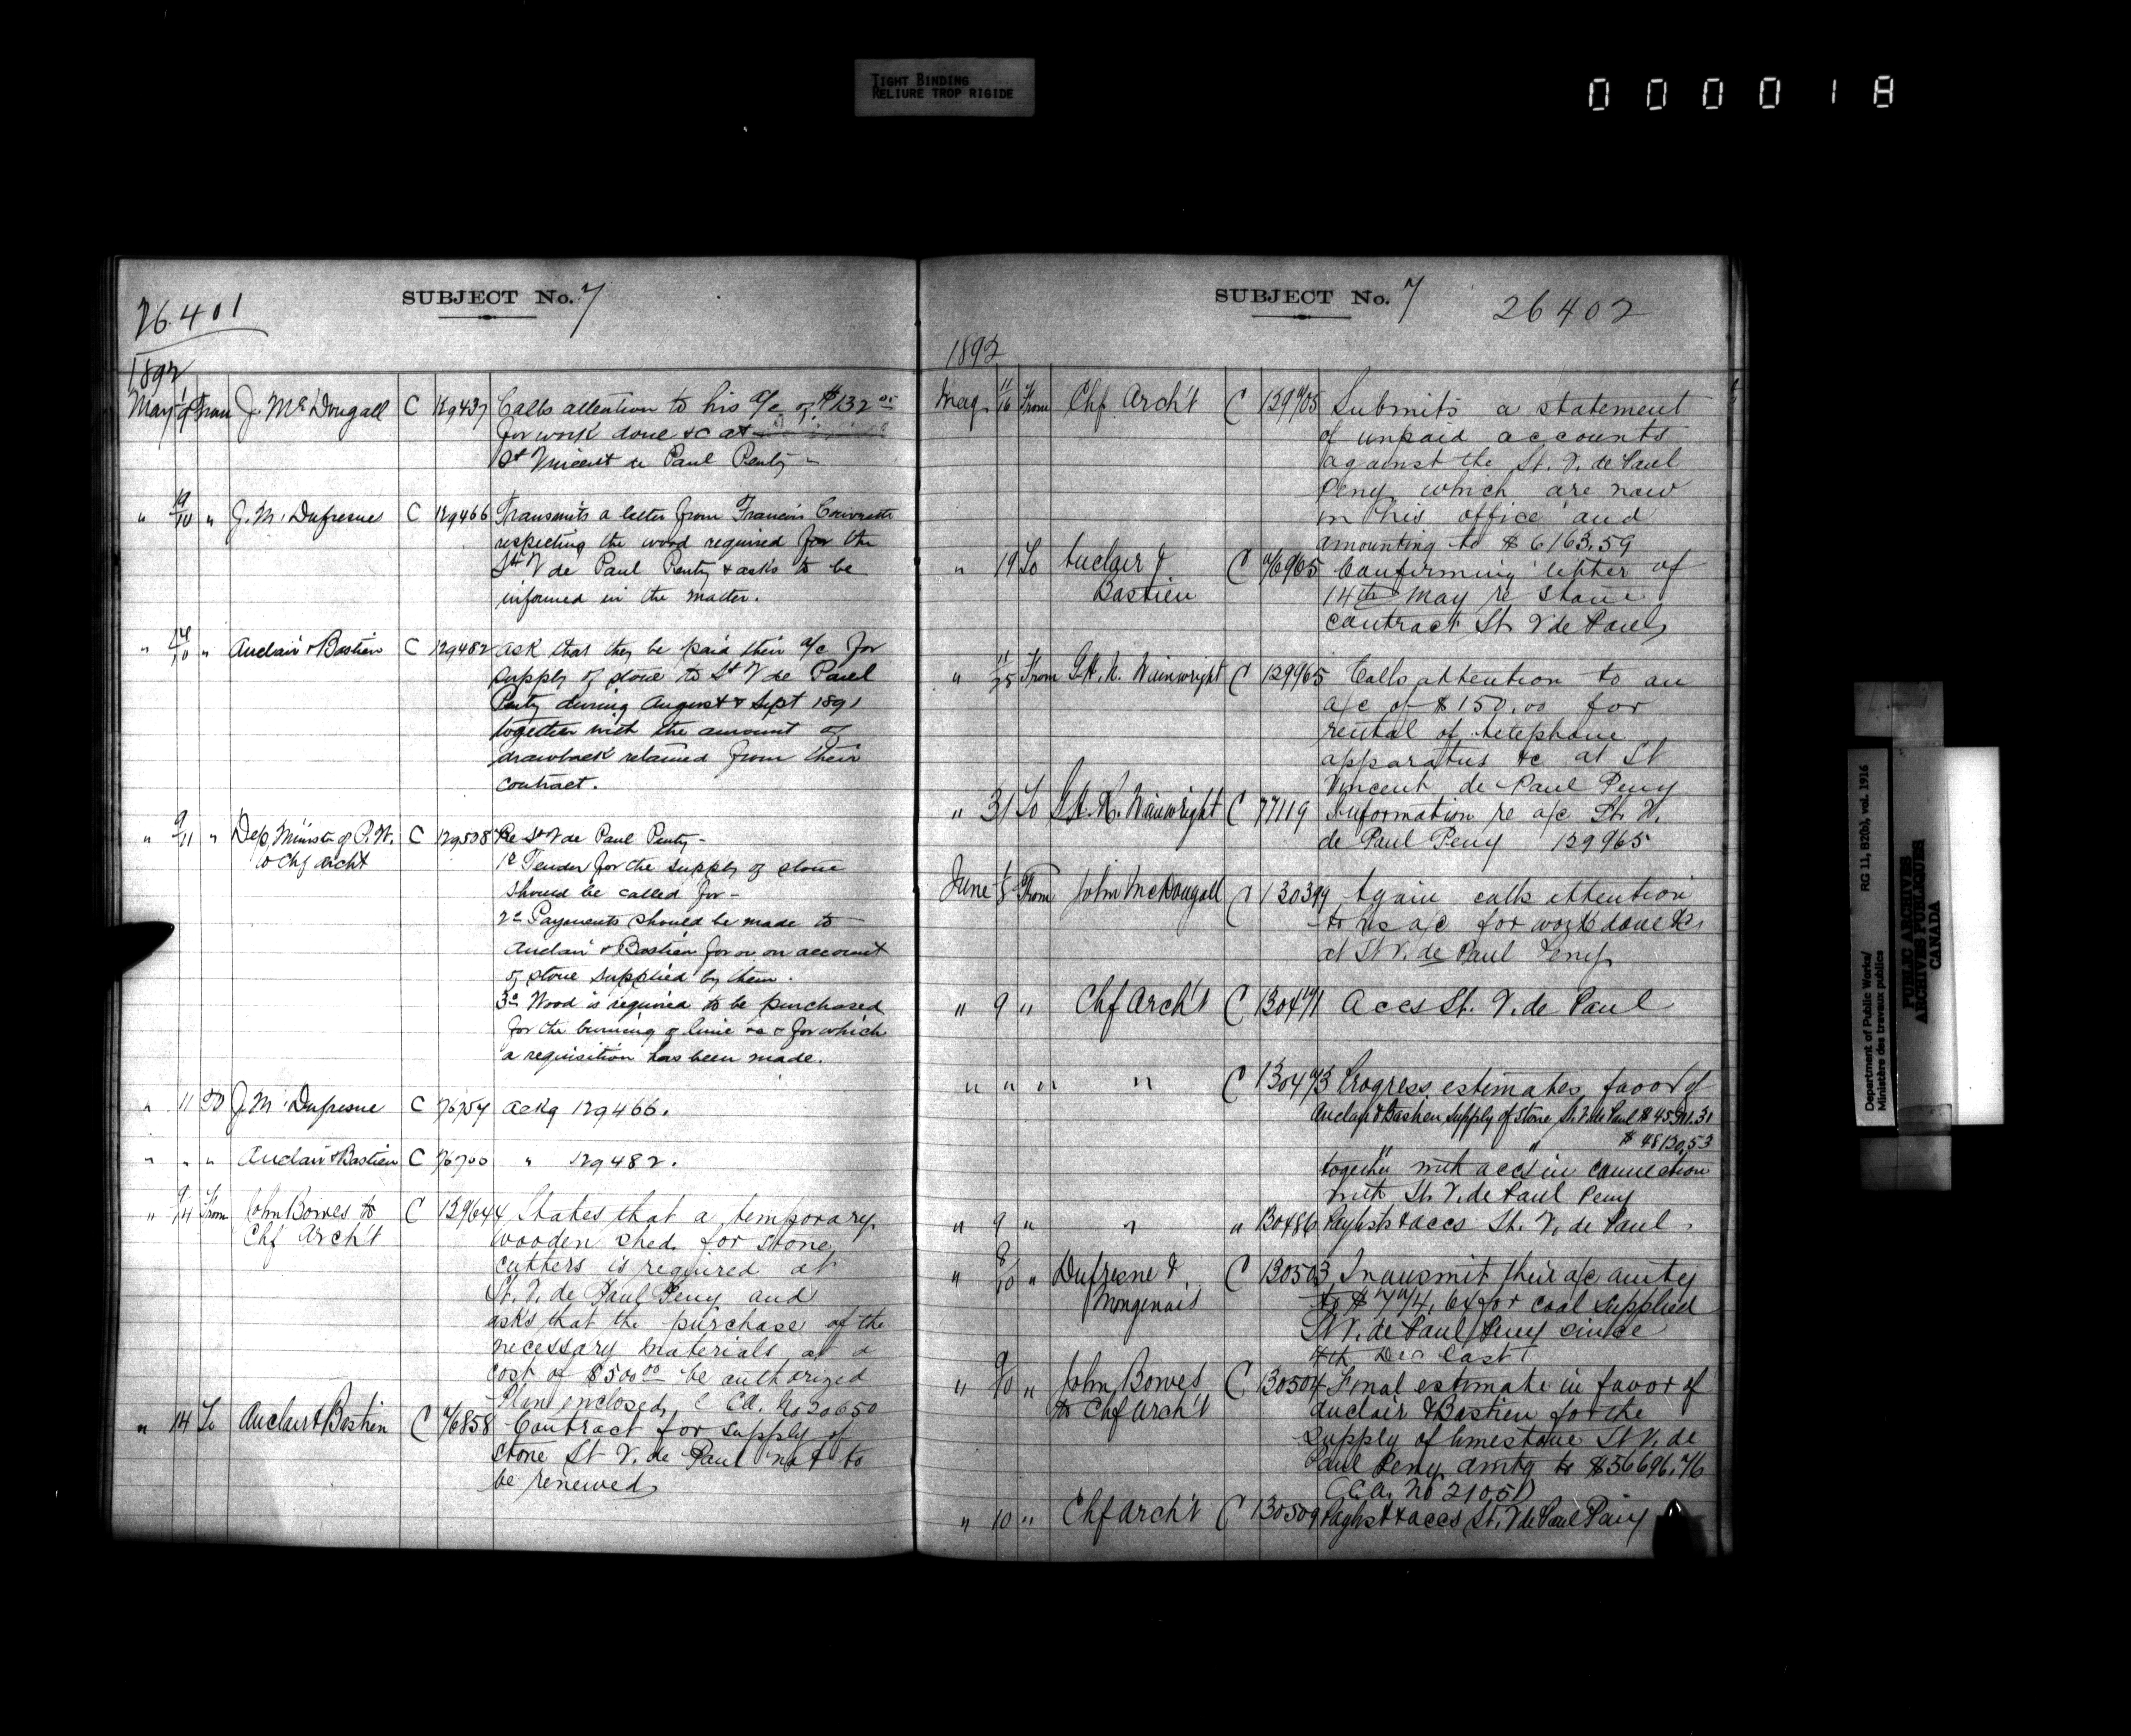 TIGHT BINDING
RELIURE TROP RIGIDE
000018
26401
SUBJECT No. 7
1892
May From J. McDougall C 129437 Calls attention to his a/c of $132
for work done &c at
St Vincent de Paul Penty
" 9/10 " J. M. Dufresne C 129466 Transmits a letter from Francois
respecting the wood required for the
St V de Paul Penty & asks to be
informed in the matter.
" " Auclair & Bastien C 129482 ask that they be paid their a/c for
supply of stone to St V de Paul
Penty during August & Sept 1891
together with the amount of
drawback retained from their
contract.
" 9/11 " Dep. Minister of P.W. C 129508 Re St V de Paul Penty -
to Chf Archt
1o Tender for the supply of stone
should be called for -
2o Payments should be made to
Auclair & Bastien for or on account
of stone supplied by them.
3o Wood is required to be purchased
for the burning of lime &c & for which
a requisition has been made.
" 11 To J. M. Dufresne C 76754 ackg 129466.
" " " Auclair & Bastien C 76700 " 129482.
" From John Bowes to C 129644 States that a temporary
Chf Arch't
wooden shed for stone
cutters is required at
St. V. de Paul Peny and
asks that the purchase of the
necessary materials at a
cost of $500.00 be authorized
Plan enclosed, No 20650
" 14 To Auclair & Bastien C 76858 Contract for supply of
stone St V. de Paul not to
be renewed
SUBJECT No. 7
26402
1892
May 11/16 From Chf Arch't C 129705 Submits a statement
of unpaid accounts
against the St. V. de Paul
Peny which are now
in his office and
amounting to $6163.59
" 19 To Auclair & C 76965 Confirming letter of
Bastien
14th May re stone
contract St V de Paul
" 11/25 From Wainwright C 129965 Calls attention to an
a/c of $150.00 for
rental of telephone
apparatus &c at St
Vincent de Paul Peny
" 31 To Wainwright C 77119 Information re a/c St. V.
de Paul Peny 129965
June From John McDougall C 130399 Again calls attention
to his a/c for work done &c
at St V. de Paul Peny
" 9 " Chf Arch't C 130471 Accs St. V. de Paul
" " " " C 130473 Progress estimates favor of
Auclair & Bastien supply of stone St. V. de Paul
together with accs in connection
with St. V. de Paul Peny
" 9 " " " 130486 Paylists & accs St. V. de Paul
" 8/10 " Dufresne & C 130503 Transmit their a/c amtg
Mongenais
for coal supplied
St V. de Paul Peny since
4th Dec last
" 9/10 " John Bowes C 130504 Final estimate in favor of
to Chf Arch't
Auclair & Bastien for the
supply of limestone St V. de
Paul Peny amtg to $56696.76
No 21051
" 10 " Chf Arch't C 130509 Paylist & accs St. V de Paul Peny
Department of Public Works/
Ministère des travaux publics
RG 11, B2(b), vol. 1916
PUBLIC ARCHIVES
ARCHIVES PUBLIQUES
CANADA